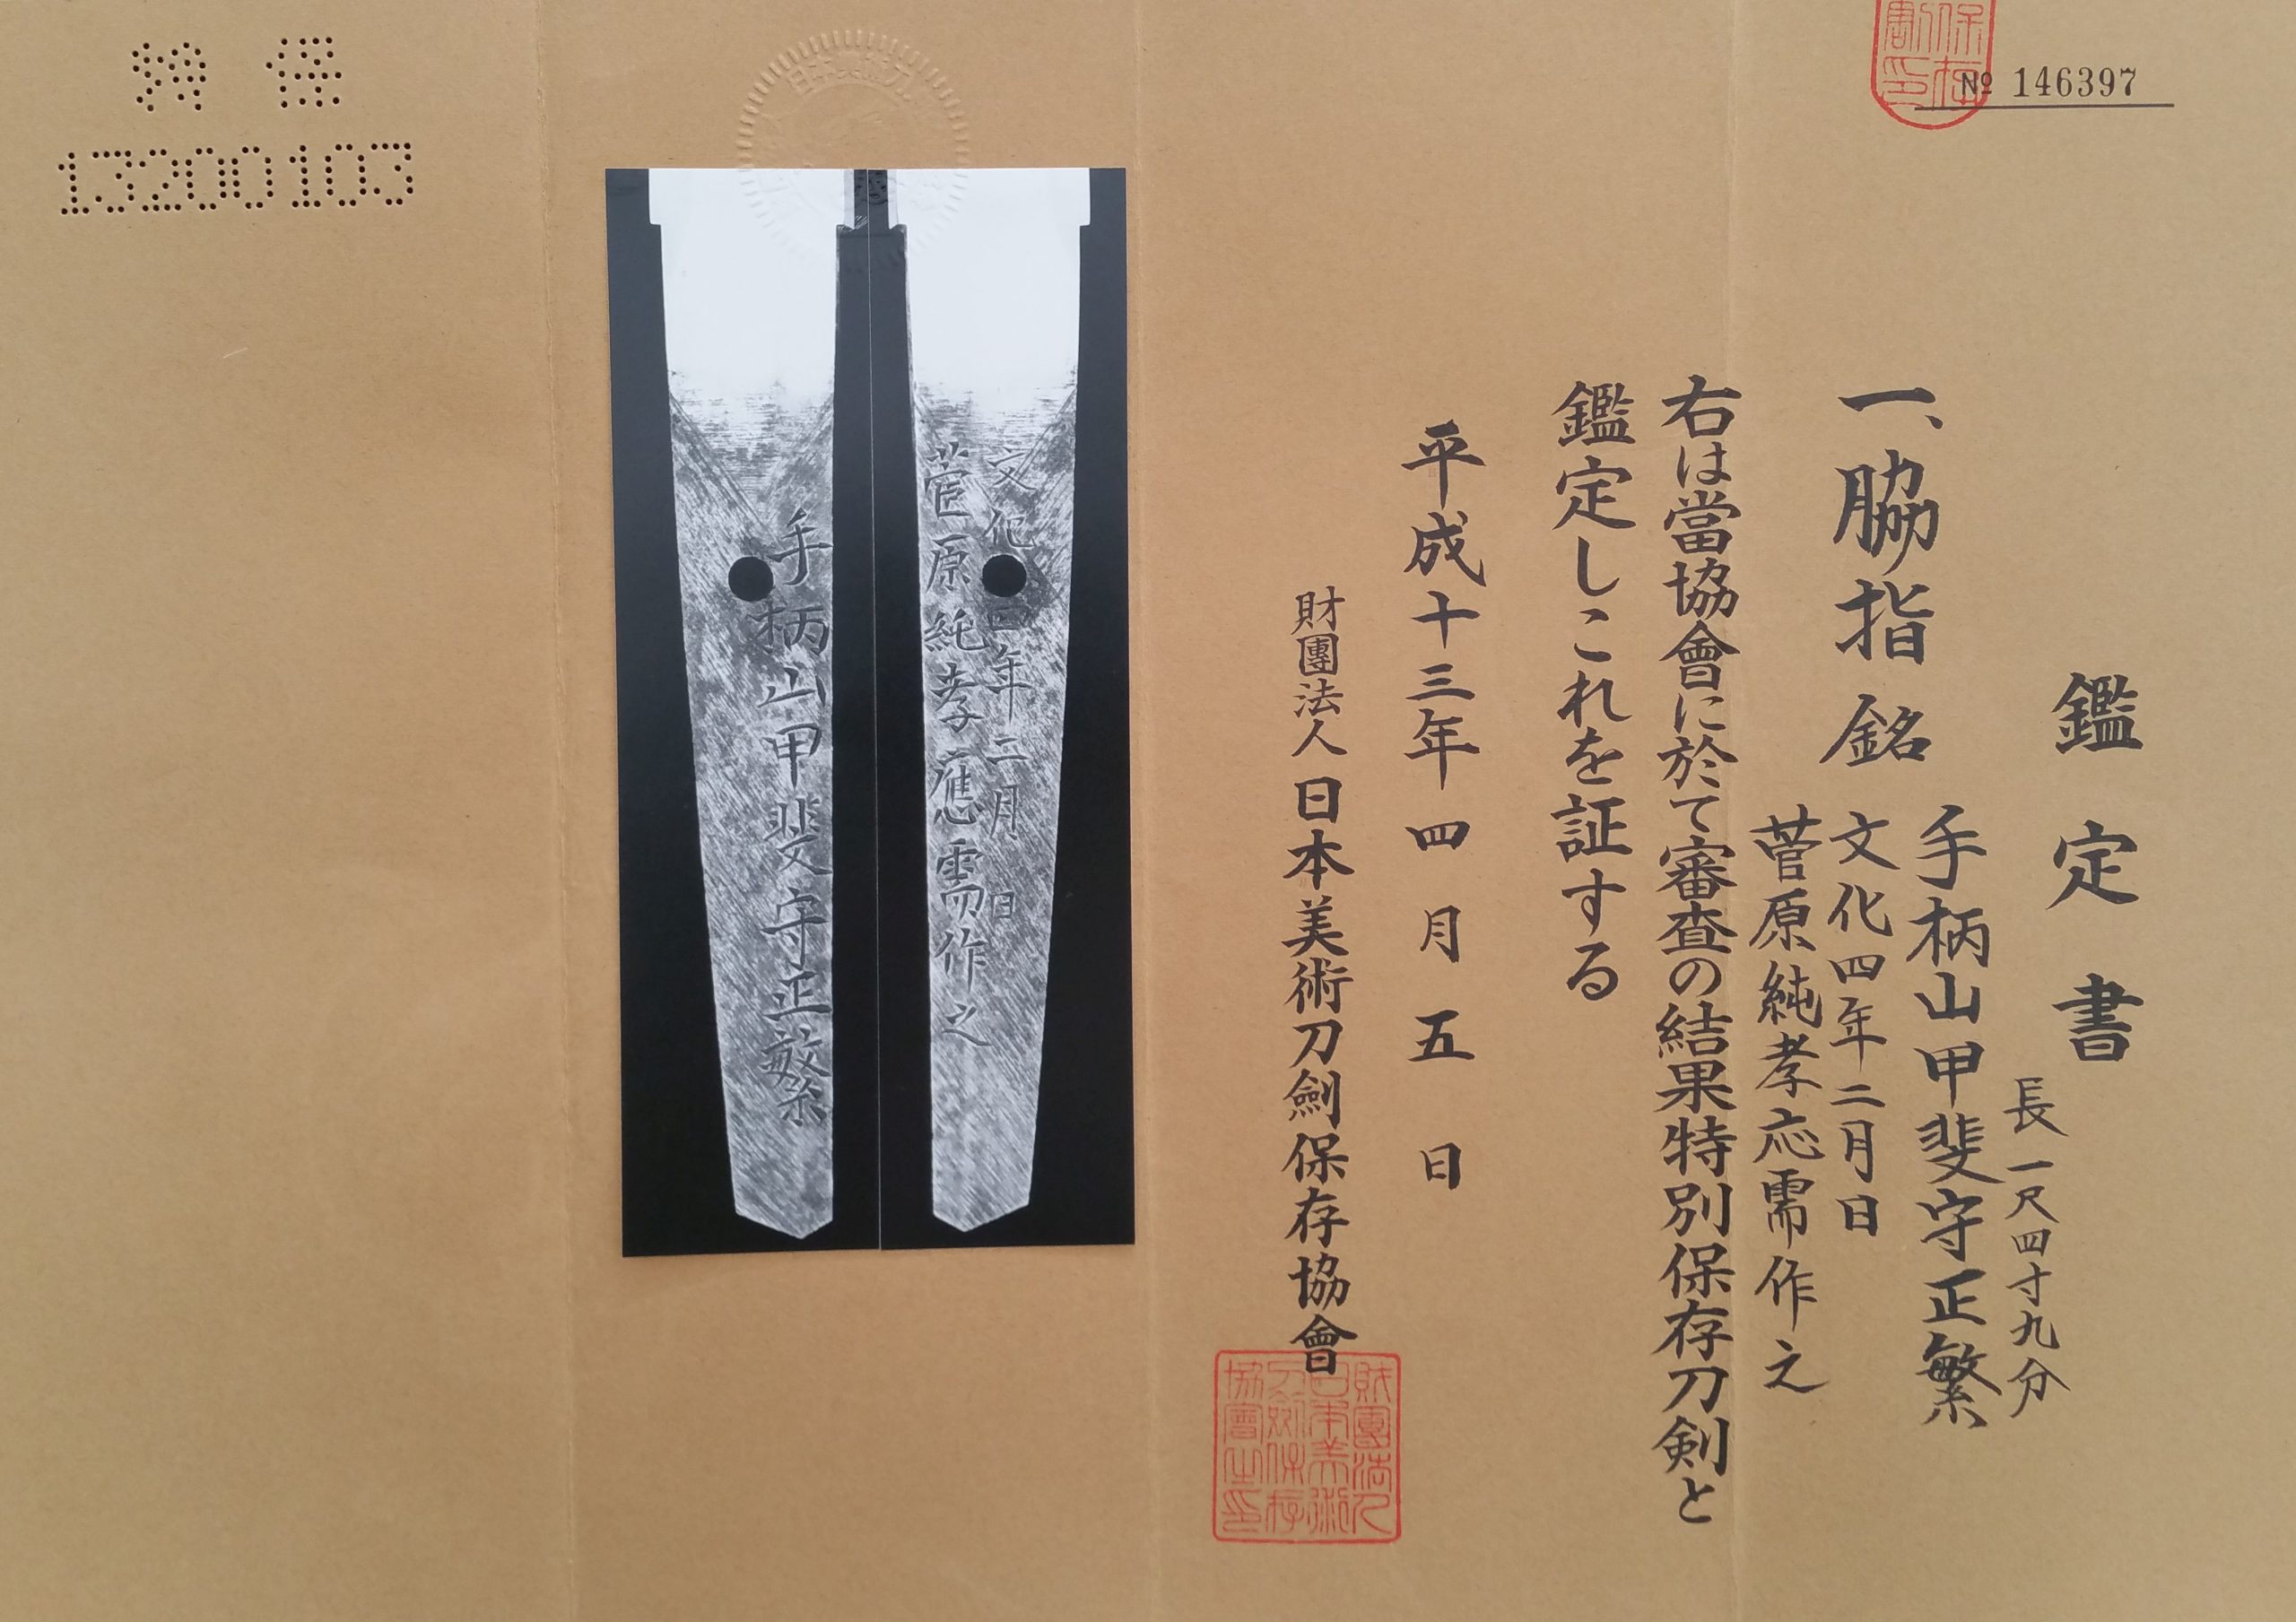 № 146397
保存
割印
鑑定書
長一尺四寸九分
一、脇指 銘 手柄山甲斐守正繁
文化四年二月日
菅原純孝応需作之
右は當協會に於て審査の結果特別保存刀剣と
鑑定しこれを証する
平成十三年四月五日
財團法人日本美術刀劍保存協會
財團法人
日本美術
刀劍保存
協會之印
文化四年二月日
菅原純孝應需作之
手柄山甲斐守正繁
特保
13200103